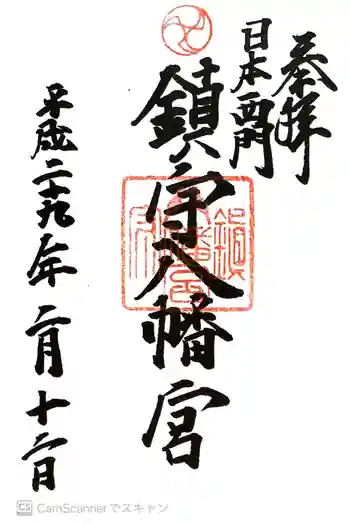 奉拝
日本西門
鎮守八幡宮
平成二十九年二月十二日
CS CamScanner でスキャン